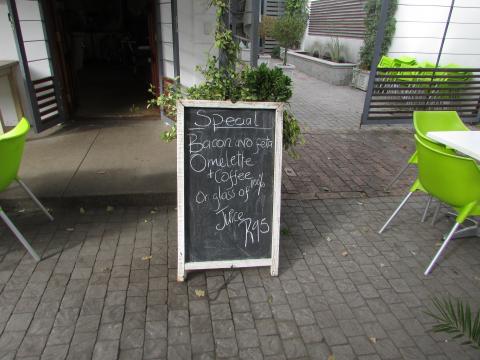 Special
Bacon avo feta
Omelette
+ Coffee
Or glass of 100%
Juice
R95